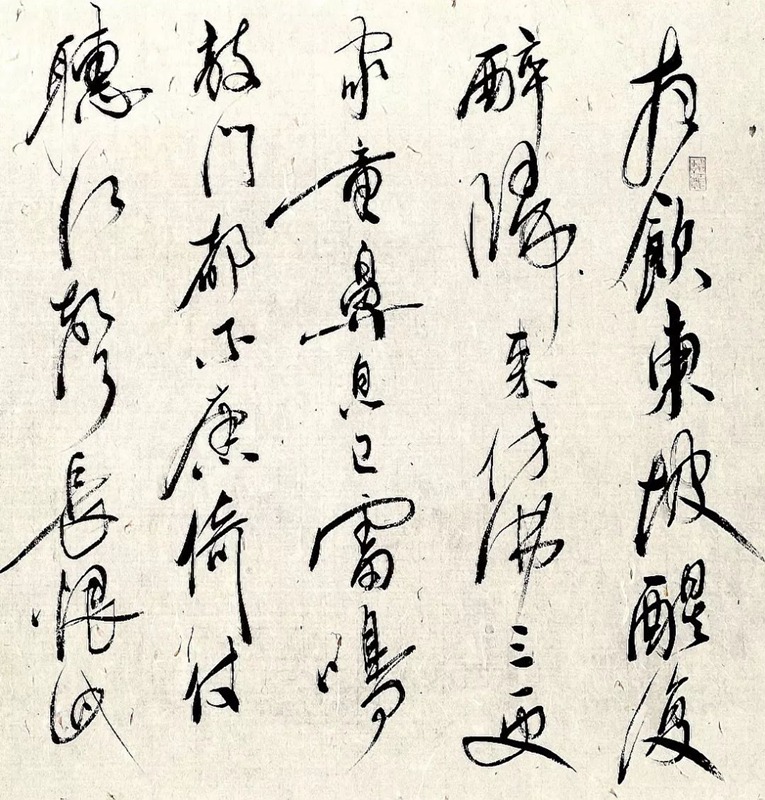 夜飲東坡醒復
醉歸來仿佛三更
家童鼻息已雷鳴
敲門都不應倚杖
聽江聲長恨此